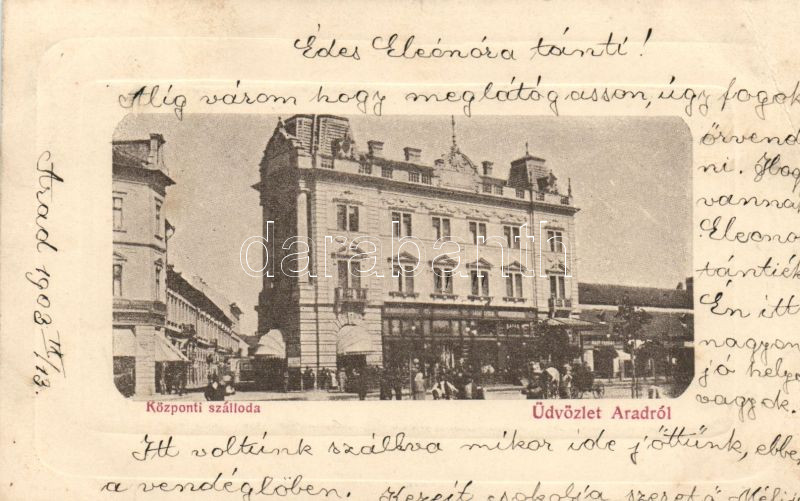 Édes Eleónóra tánti!
Alig várom hogy meglátógasson, úgy fogok
örvend
ni. Hog
vanna
Eleono
tántiék
Én itt
nagyon
jó helye
vagyok.
Arad 1903 IX/13.
darabanth
Központi szálloda
Üdvözlet Aradról
Itt voltunk szállva mikor ide jöttünk, ebbe
a vendéglöben. Kezeit csokolja szeretö